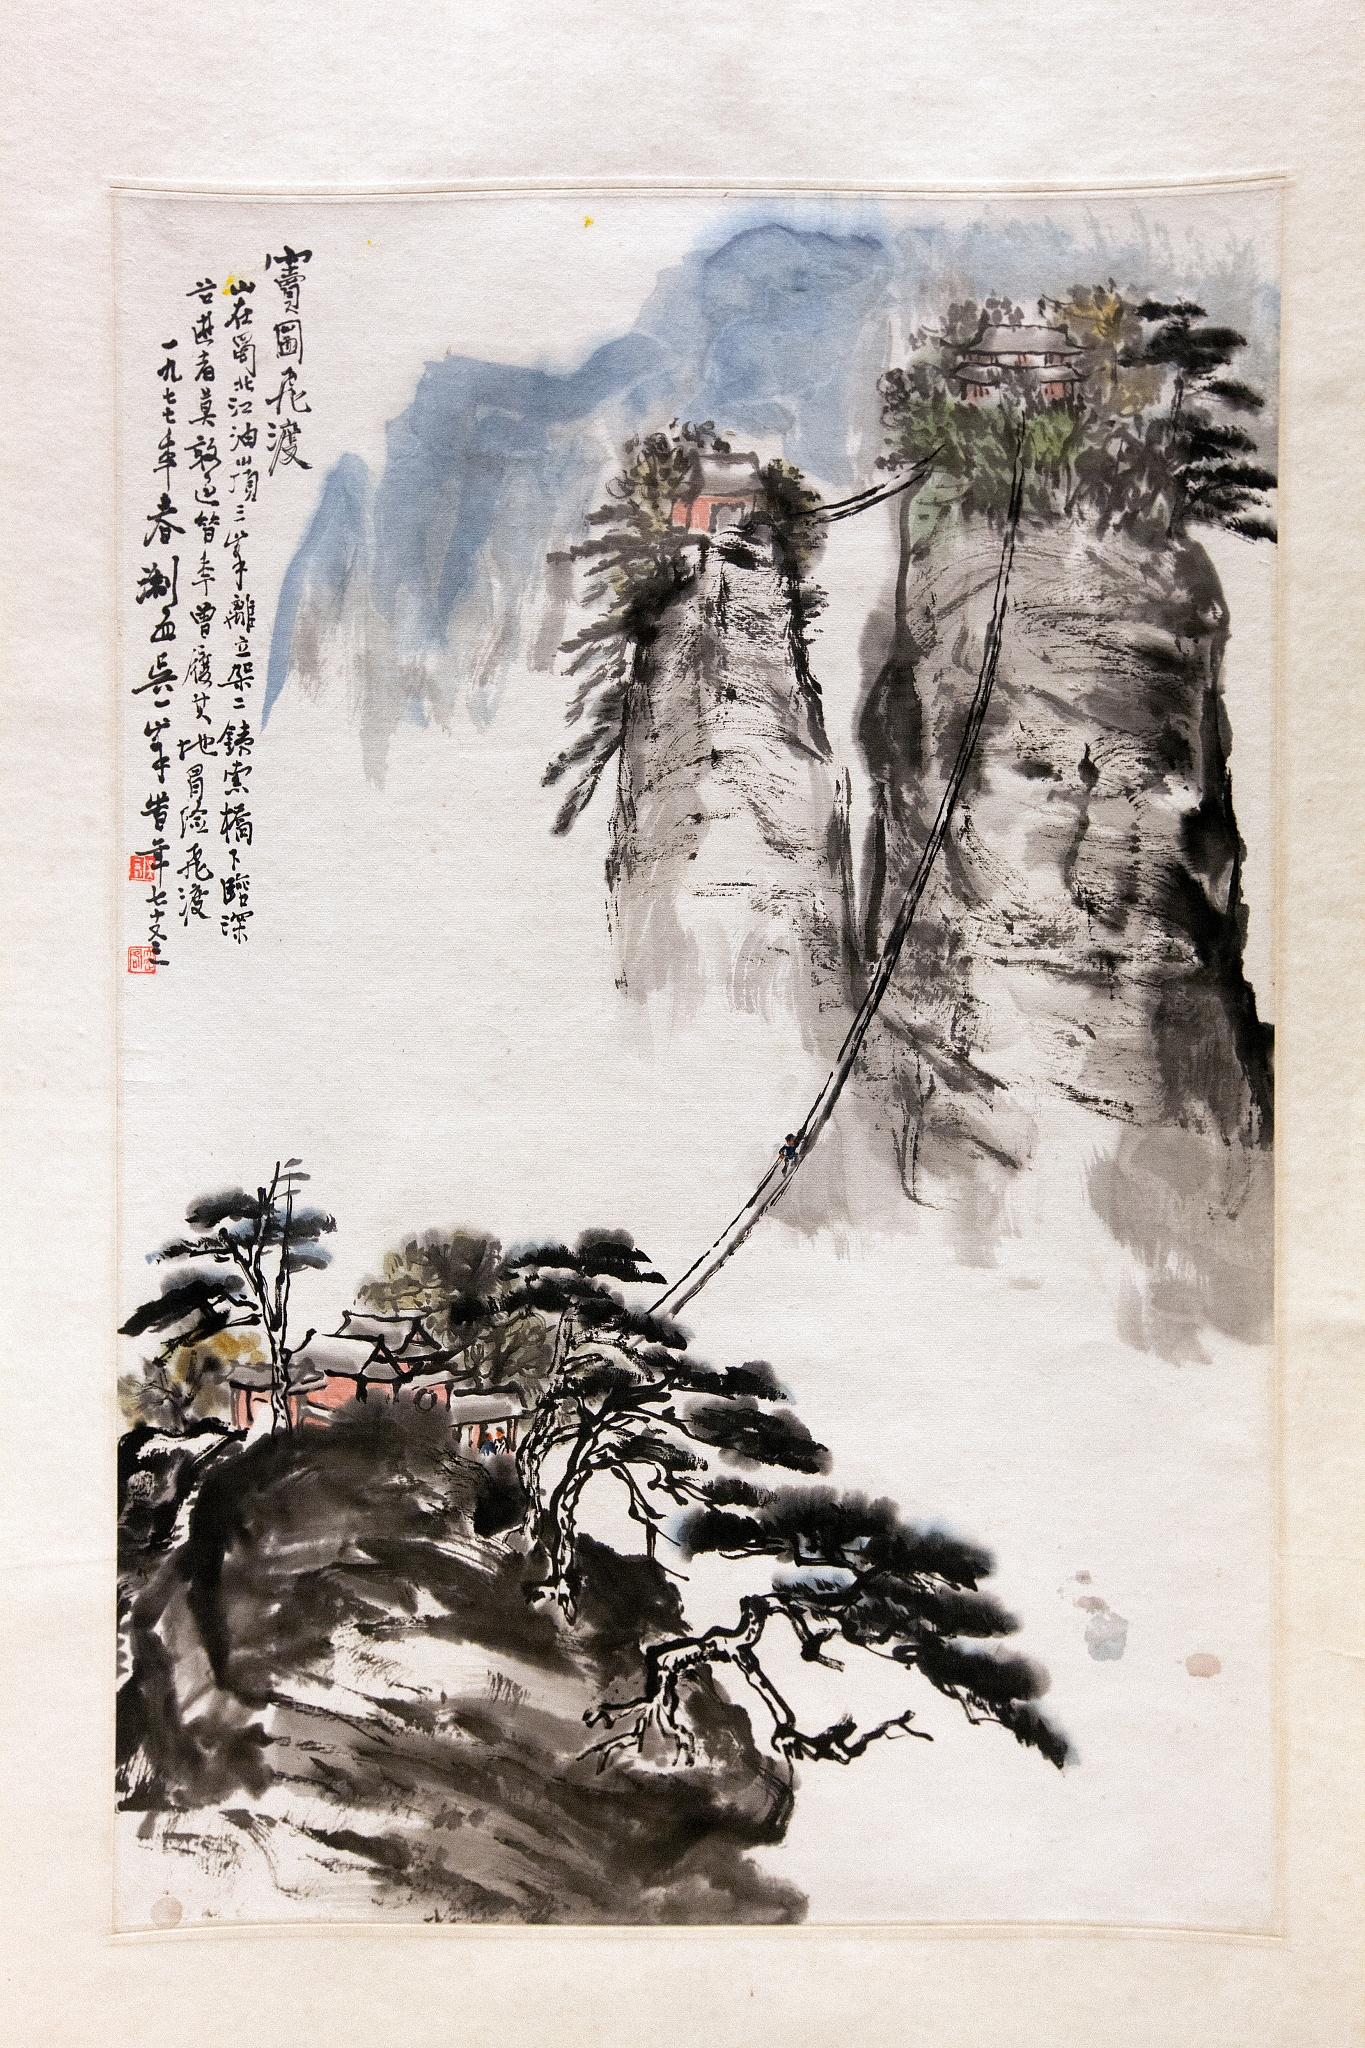 竇圌飛渡
山在蜀北江油山頂三峯離立架二鐵索橋下臨深
谷遊者莫敢過昔年曾履其地冒險飛渡
一九七七年春渊而吳一峯昔年七十又三